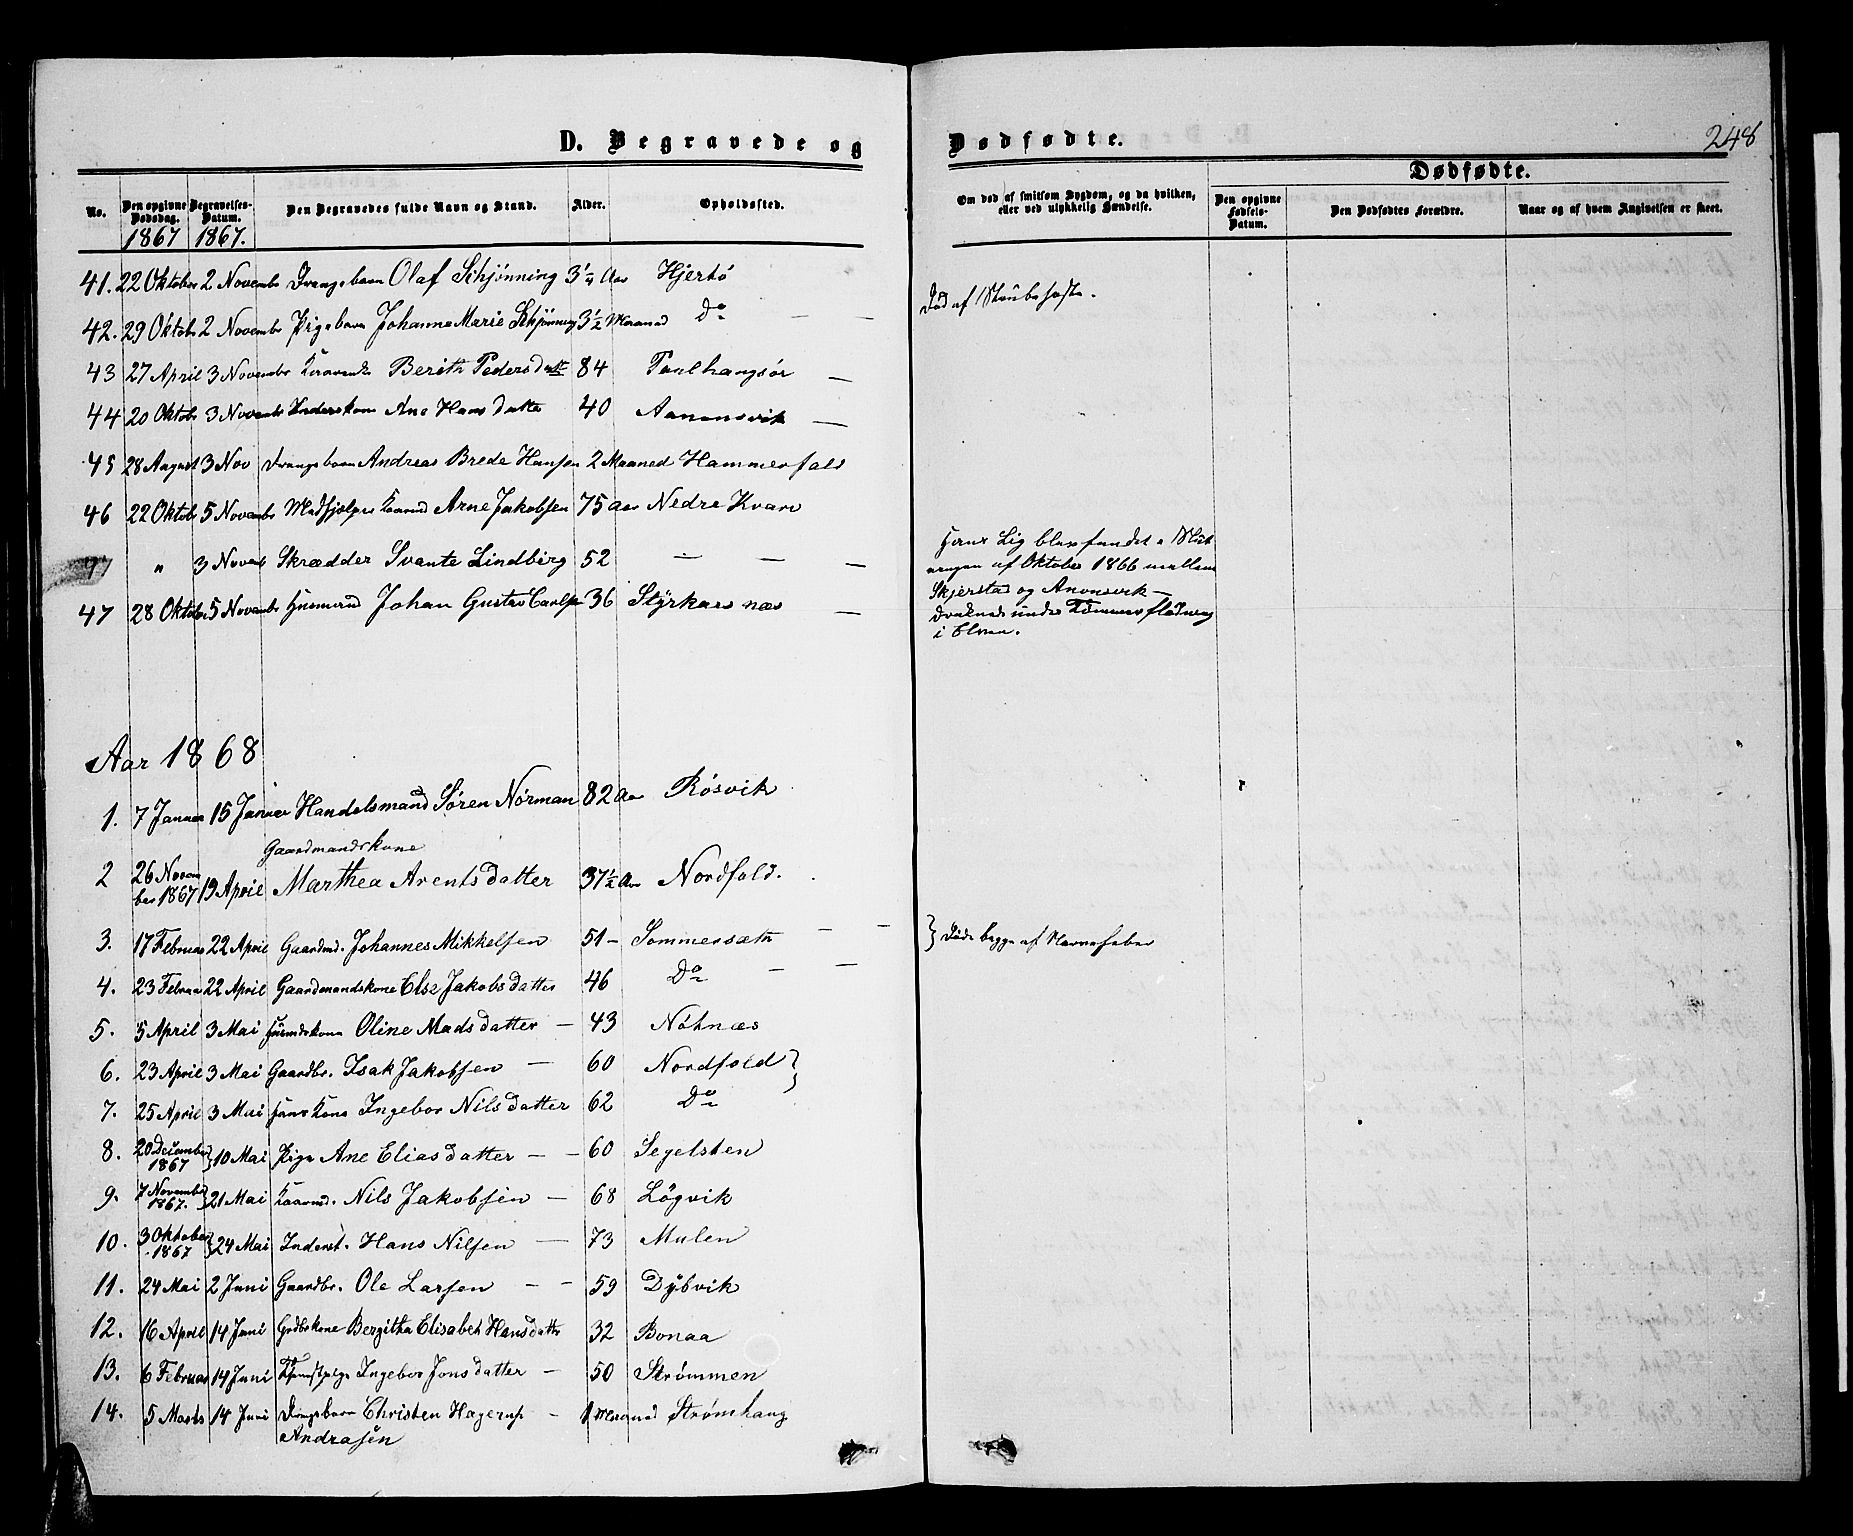 D. Begravede og Dødfødte.
248
Dødfødte.
No. Den opgivne Dødsdag. Begravelses-Datum. Den Begravedes fulde Navn og Stand. Alder. Opholdssted. Om død af smitsom Sygdom, og da hvilken, eller ved ulykkelig Hændelse. Den opgivne Fødsels-Datum. Den Dødfødtes Forældre. Naar og af hvem Angivelsen er skeet.
1867 1867.
41. 22 Oktober 2 Novembr Drengebarn Olaf Schjønning 3 1/4 Aar Hjertø
Død af Strubehoste.
42. 29 Oktobr 2 Novembr Pigebarn Johanne Marie Schjønning 3 1/2 Maaned Do
43 27 April 3 Novembr Berith Pedersdatt 84
44 20 Oktobr 3 Novembr Inderstkone Ane Hansdatter 40 Aanensvik
45 28 August 3 Nov Drengebarn Andreas Brede Hansen 2 Maaned Hammerfald
46 22 Oktobr 5 Novembr Arne Jakobsen 75 Aar Nedre Kvarv
47 " 3 Novemb Skrædder Svante Lindberg 52 —
Hans Lig blev fundet i Slut
ningen af Oktober 1866 mellem
Skjerstad og Anonsvik —
druknet under Tømmerflødning
i Elven.
47 28 Oktober 5 Novembr Husmand Johan Gustav Carlsen 36 Styrkarsnæs
Aar 1868
1. 7 Januar 15 Januar Handelsmand Søren Nørman 82 Aar Røsvik
Gaardmandskone
2 26 Novem
ber 1867 19 April Marthea Arentsdatter 37 1/2 Aar Nordfold.
3. 17 Februar 22 April Gaardmd. Johannes Mikkelsen 51 — Sommersæth
} Døde begge af Nervefeber
4. 23 Februar 22 April Gaardmandskone Else Jakobsdatter 46 Do
5. 5 April 3 Mai Husmdskone Oline Madsdatter — 43 Nøhnæs
6. 23 April 3 Mai Gaardbr. Isak Jakobsen — 60 Nordfold }
7. 25 April 3 Mai Hans Kone Ingebor Nilsdatter 62 Do
8. 20 December
1867 } 10 Mai Pige Ane Eliasdatter — 60 Segelsten
9. 7 November
1867. } 21 Mai Kaarmd. Nils Jakobsen — 68 Løgvik
10. 3 Oktober
1867 } 24 Mai Inderst. Hans Nilsen — 73 Mulen
11. 24 Mai 2 Juni Gaardbr. Ole Larsen — 59 Dybvik
12. 16 April 14 Juni Grdbrkone Bergitha Elisabeth Hansdattr 32 Bonaa
13. 6 Februar 14 Juni Tjenstpige Ingebor Jonsdatter — 50 Strømmen
14. 5 Marts 14 Juni Drengebarn Christen Hagerup — 1 Maaned Strømhaug
Andrasen